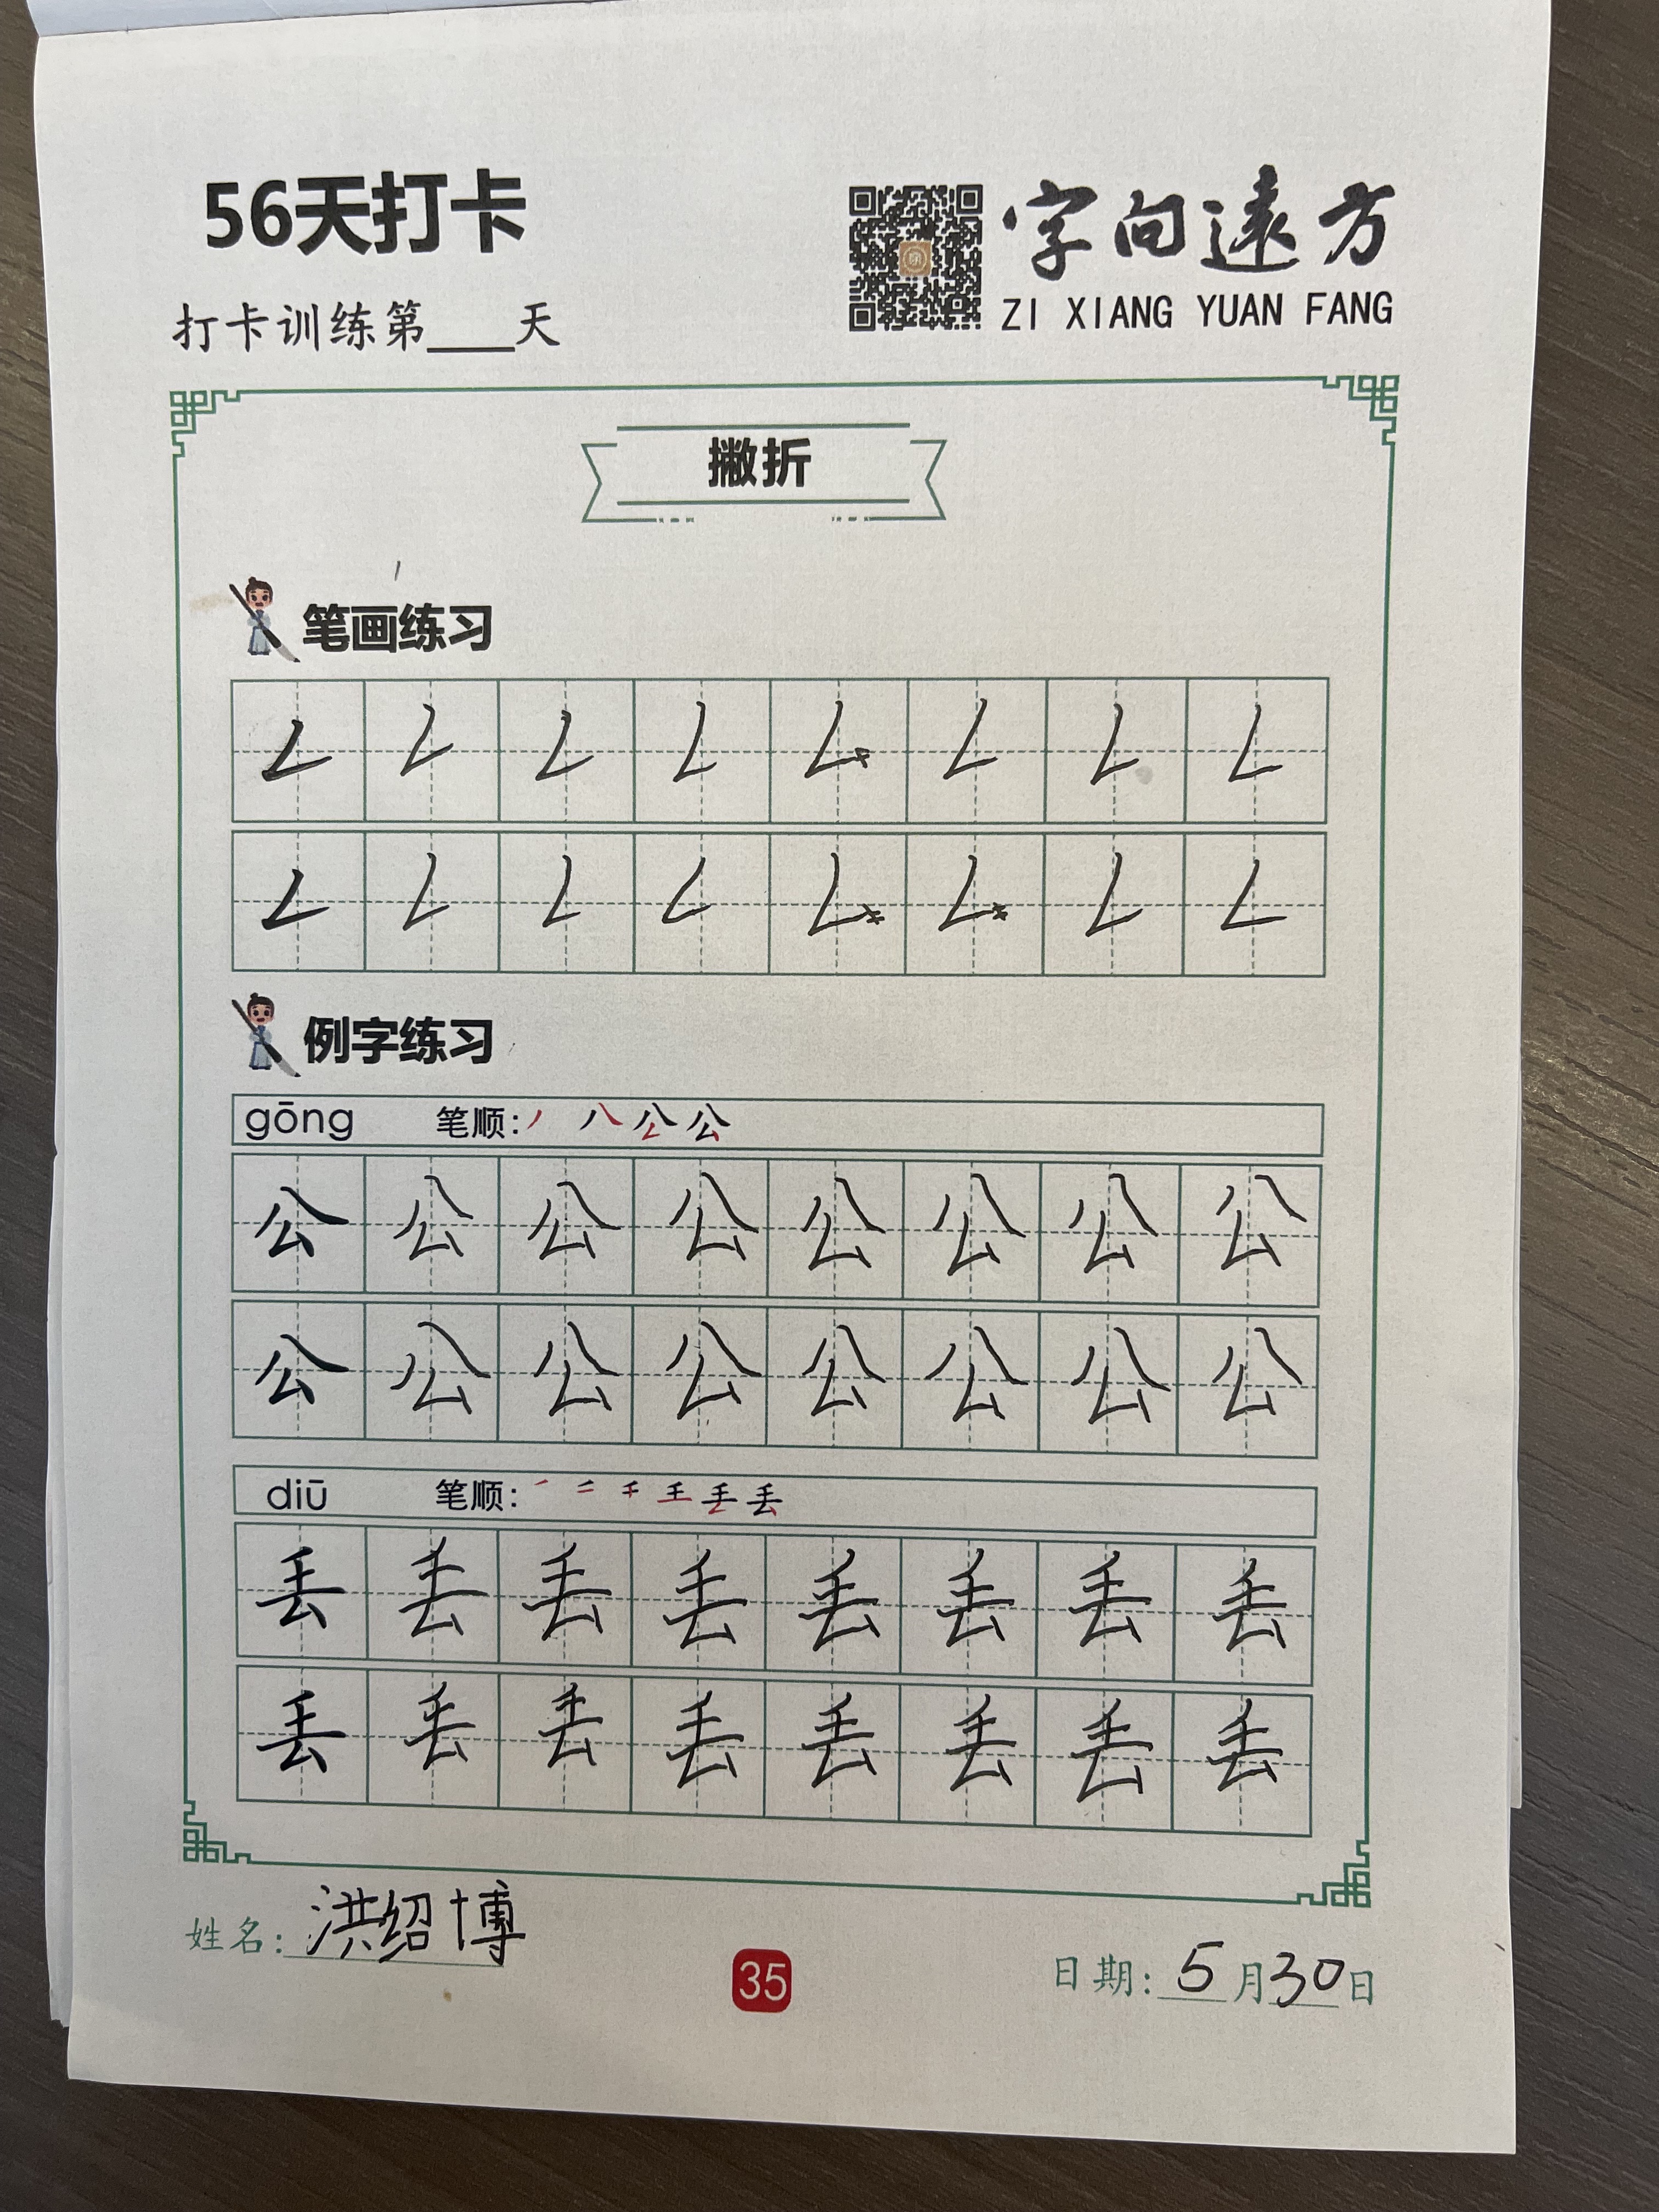 56天打卡
字向遠方
打卡训练第____天
ZI XIANG YUAN FANG
撇折
笔画练习
𠃋 𠃋 𠃋 𠃋 𠃋 𠃋 𠃋 𠃋
𠃋 𠃋 𠃋 𠃋 𠃋 𠃋 𠃋 𠃋
例字练习
gōng 笔顺:
公 公 公 公 公 公 公 公
公 公 公 公 公 公 公 公
diū 笔顺:
丢 丢 丢 丢 丢 丢 丢 丢
丢 丢 丢 丢 丢 丢 丢 丢
姓名: 洪绍博
35
日期: 5月30日